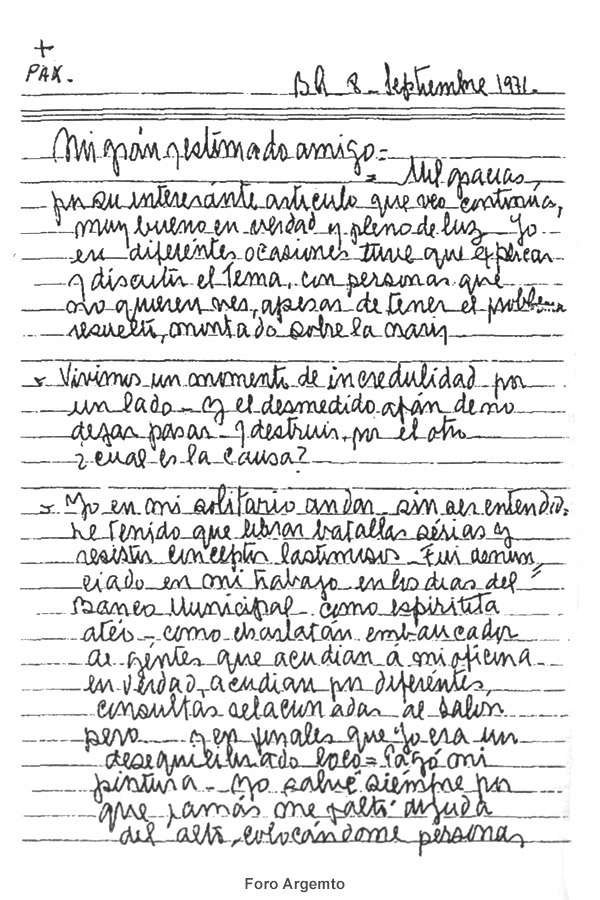 +
PAX.
BA 8 - Septiembre 1971.
Mi grán y estimado amigo =
Mil gracias,
por su interesánte articulo que veo continúa,
muy bueno en verdad y pleno de luz - Yo
en diferéntes ocasiones tuve que explicar
y discutir el Tema, con personas que
no quieren ver, apesar de tener el problema
resuelto, montado sobre la nariz
Vivimos un momento de incredulidad por
un lado - y el desmedido afán de no
dejar pasar - y destruir, por el otro
¿cual es la causa?
Yo en mi solitario andar - sin ser entendido =
he tenido que librar batallas sérias y
resistir conceptos lastimosos - Fui denun
ciado en mi trabajo en los dias del
Banco Municipal - como espiritista
atéo - como charlatán embaucador
de géntes que acudian á mi oficina -
en verdad, acudian por diferéntes,
consultas relacionadas al salon
pero - y en finales que Yo era un
desequilibrado loco = Pagó mi
pintura - Yo salvé siémpre por
que jamás me faltó ayuda
del alto, colocándome personas
Foro Argemto